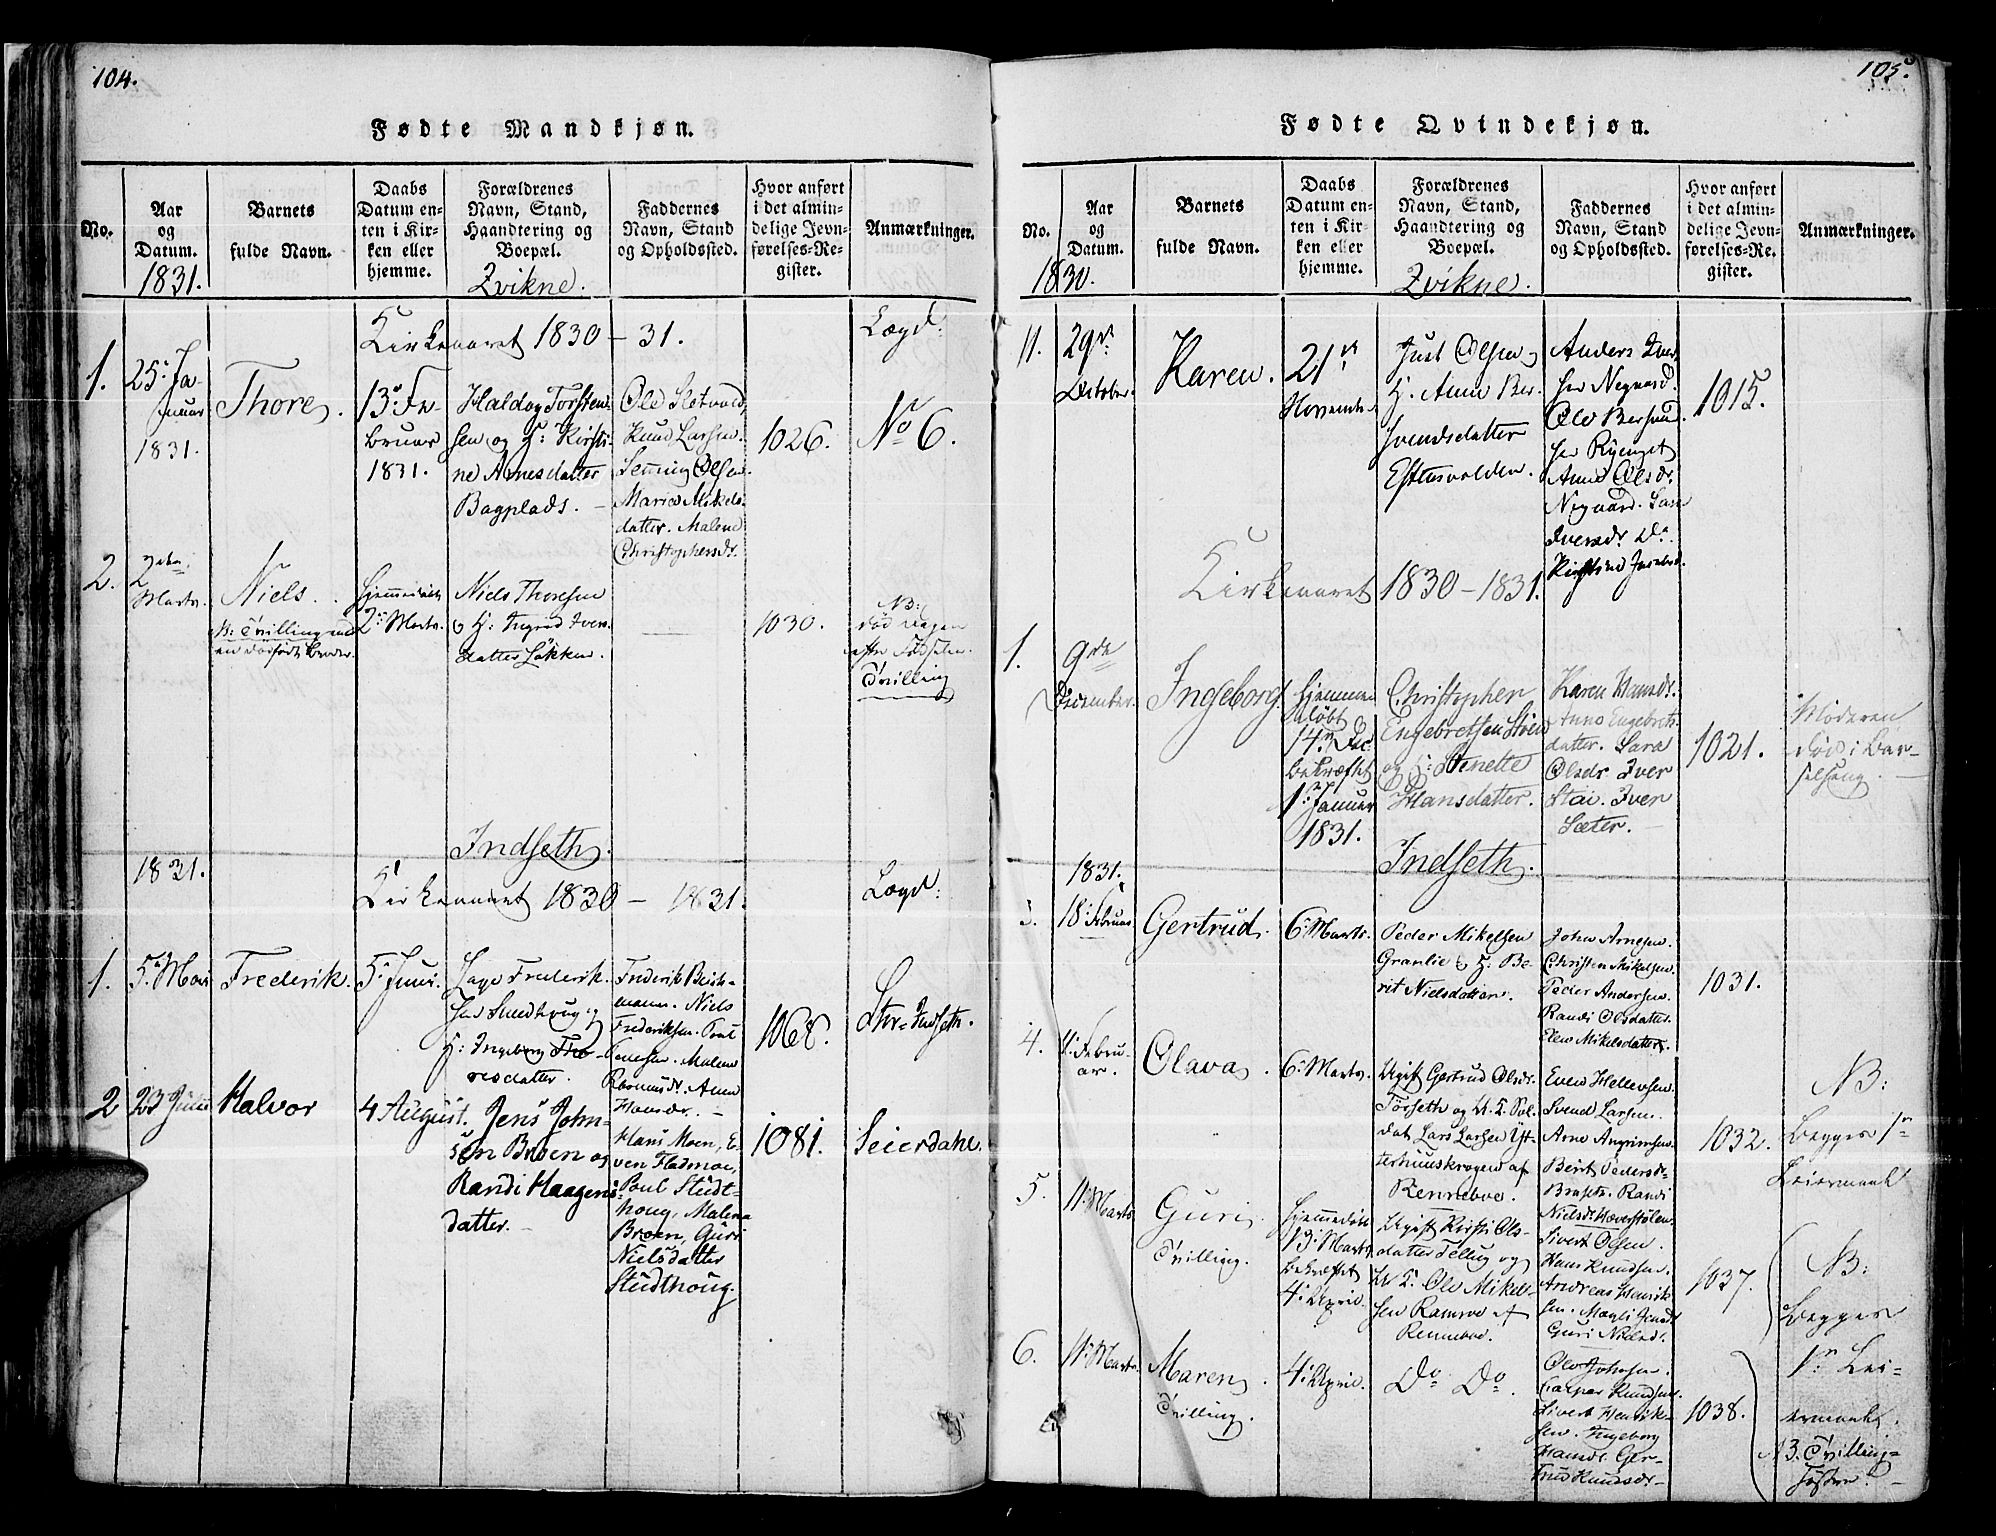 104.
Fødte Mandkjøn.
No.
Aar
og
Datum.
1831.
Barnets
fulde Navn.
Daabs
Datum en-
ten i Kir-
ken eller
hjemme.
Forældrenes
Navn, Stand,
Haandtering og
Boepæl.
Qvikne.
Faddernes
Navn, Stand
og Opholdssted.
Hvor anført
i det almin-
delige Jevn-
førelses-Re-
gister.
Anmærkninger.
Kirkeaaret 1830 – 31.
Lægd:
1.
25. Ja-
nuar
1831.
Thore.
13. Fe-
bruar
1831.
Haldog Torsten-
sen og H: Kirsti-
ne Arnesdatter
Bagplads.
Ole Sletvold,
Knud Larsen.
Semming Olsen.
Marie Mikels-
datter. Malene
Christophersdr.
1026.
No 6.
2.
2den
Marts.
Niels.
N: Tvilling med
en dødfødt Broder.
Hjemmedøbt
2. Marts.
Niels Thoresen
& H: Ingrid Ivers-
datter Løkken.
1030.
NB:
død Dagen
efter Fødselen.
Tvilling
Indseth.
1831.
Kirkeaaret 1830 – 1831.
Lægd:
1.
5. Mai
Frederik.
5. Juni.
Lage Frederik-
sen Sundhoug og
H: Ingeborg Tho-
resdatter.
Frederik Beich-
mann. Niels
Frederiksen. Poul
Tonsen. Malene
Rasmusdr. Anne
Hansdr.
1068.
Str. Indseth.
2
23 Juni
Halvor
4 August.
Jens John-
sen Broen og
Randi Haagens-
datter.
Hans Moen, E-
ven Fladmoe,
Poul Stüdt-
houg, Malena
Broen, Guri
Nielsdatter
Stüdthoug.
1081.
Seierdahl.
105.
Fødte Qvindekjøn.
No.
Aar
og
Datum.
1830.
Barnets
fulde Navn.
Daabs
Datum en-
ten i Kir-
ken eller
hjemme.
Forældrenes
Navn, Stand,
Haandtering og
Boepæl.
Qvikne.
Faddernes
Navn, Stand
og Opholdssted.
Hvor anført
i det almin-
delige Jevn-
førelses-Re-
gister.
Anmærkninger.
11.
29de
October.
Karen.
21de
Novemb.
Just Olsen
H. Anne Ber-
svendsdatter
Estensvolden.
Anders Iver-
sen Nygaard.
Ole Bersvend-
sen Ryenget
Anne Olsdr.
Nygaard.
Iversdr. Do
1015.
Kirkeaaret 1830 – 1831.
1.
9de
December.
Ingeborg.
Hjemme
døbt
14. Dec.
bekræftet
1. Januar
1831.
Christopher
Engebretsen Stöen
og H: Stenette
Hansdatter.
Karen Hansdr.
Anne Engebrets-
datter. Sara
Olsdr Iver
Stai. Iver
Sæter.
1021.
Moderen
død i Bar-
selseng.
Indseth.
1831.
3.
18. Februar
Gertrud.
6. Marts.
Peder Mikelsen
Granlie & H: Be-
rit Nielsdatter.
John Arnesen.
Christen Mikelsen.
Peder Andersen.
Randi Olsdatter.
Elen Mikelsdatter.
1031.
4.
11. Febru-
ar.
Olava.
6. Marts.
Ugift Gertrud Olsdr.
Torseth og U. K. Sol-
dat Lars Larsen Yt-
terhuuskrogen af
Renneboe.
Even Hellevsen.
Svend Larsen.
Arne Angrimsen.
Berit Pedersdr.
Randi
Nielsdr. Hæverstølen.
1032.
NB:
Begges 1ste
Leiermaal
5.
11. Marts
Guri.
Tvilling.
Hjemmedøbt
13. Marts
bekræftet
4. April.
Ugift Kirsti Ols-
datter og
U. K. Ole Mikel-
sen af
Renneboe.
Sivert Olsen.
Hans Knudsen.
Andreas Henrik-
sen. Magli
Guri Nielsdr.
1037.
NB:
Begges
6.
11. Marts.
Maren.
Tvilling.
4. April.
Do Do.
Ole Johnsen.
Casper Knudsen.
Sivert Henrik-
sen. Ingeborg
Hansdr. Ger-
trud Knudsdr.
1038.
1ste Lei-
ermaal.
NB. Tvilling-
Søstre.